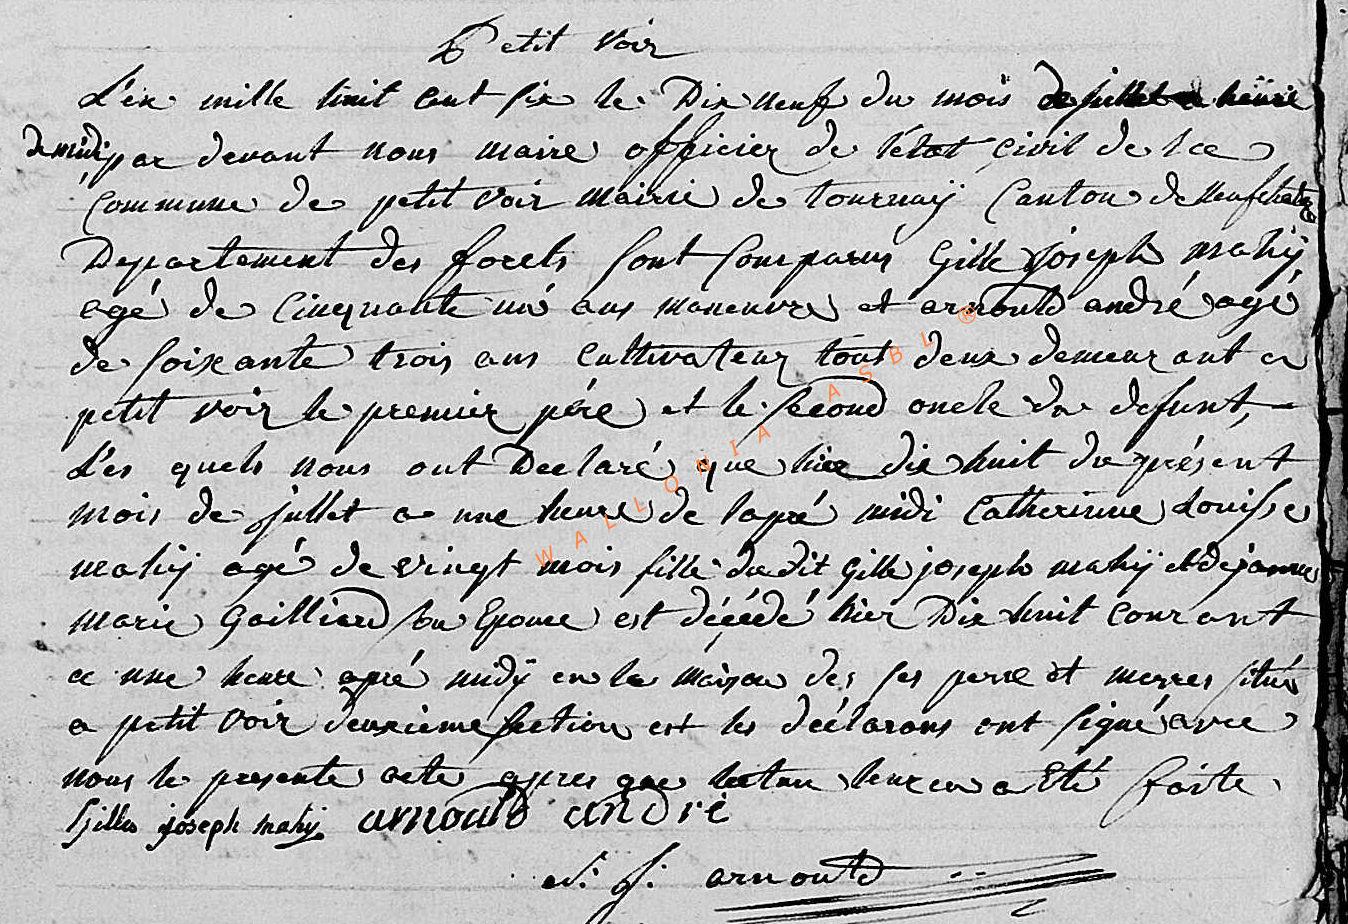 Petit Voir
L'en mille huit cent six le Dix neuf du mois de juillet a heure
de midi par devant nous maire officier de l'état Civil de la
Commune de petit voir mairie de tournaÿ Canton de neufchateau
Departement des forets sont Comparus Gille joseph mahÿ
agé de Cinquante un ans maneuvre et arnould andré agé
de soixante trois ans Cultivateur tout deux demeurant a
petit voir le premier pére et le second oncle du defunt,
Les quels nous ont Declaré que hier dix huit du présent
mois de juillet a une heure de l'apré midi Catherinne Louisse
mahÿ agé de vingt mois fille du dit Gille joseph mahÿ et de janne
marie Gailliard son Epouse est décédé hier Dix huit courant
a une heure apré midÿ en la maison des ses perre et merres situé
a petit voir deuxieme section est les déclarans ont signé avec
nous le presente acte apres que lecture leur en a Eté faite
Gilles joseph mahÿ arnould andrè
J. arnould